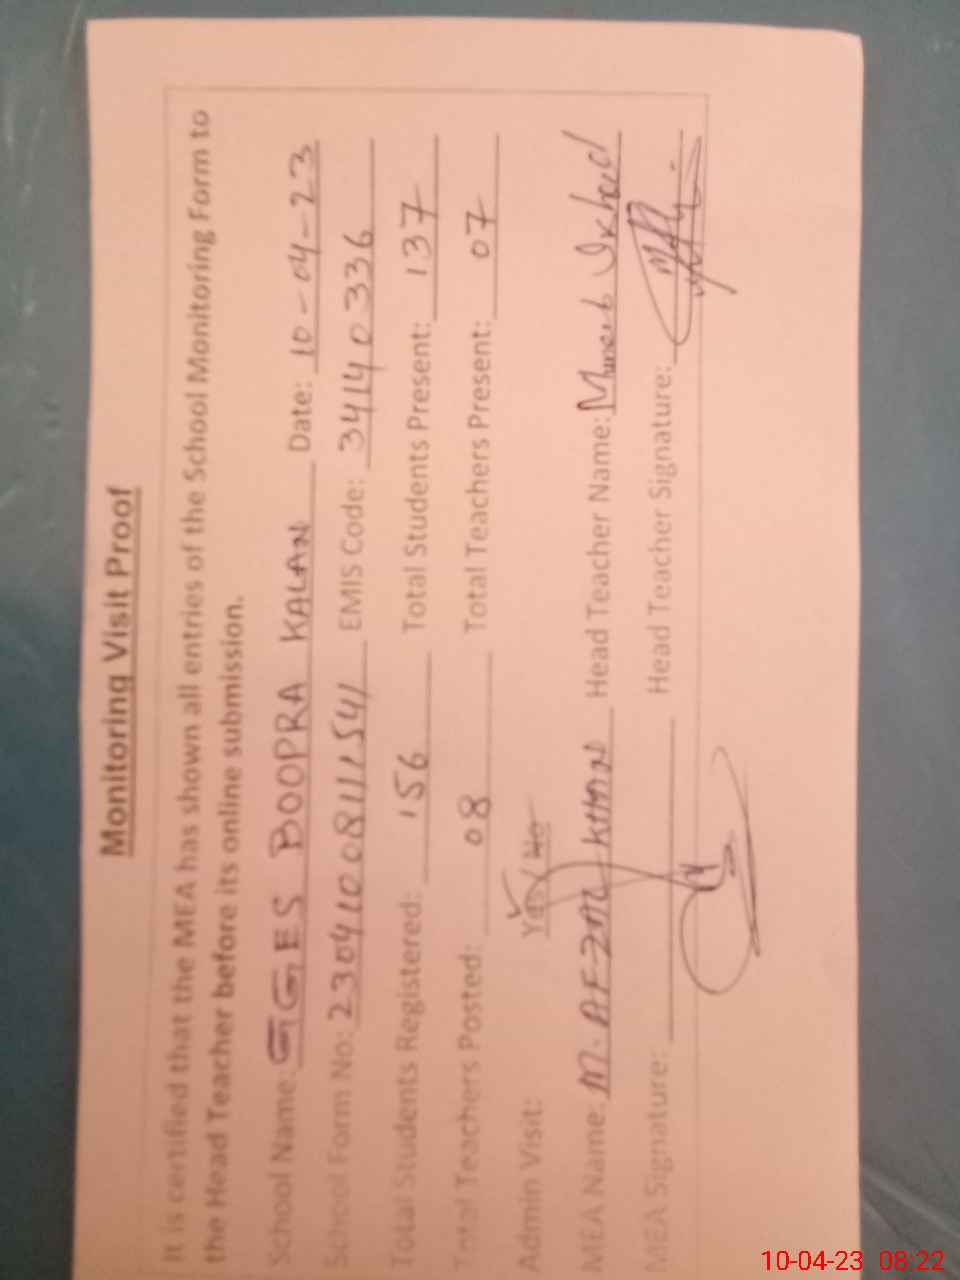 Monitoring Visit Proof
It is certified that the MEA has shown all entries of the School Monitoring Form to
the Head Teacher before its online submission.
School Name: GGES BOOPRA KALAN Date: 10-04-23
School Form No: 23041008111541 EMIS Code: 34140336
Total Students Registered: 156 Total Students Present: 137
Total Teachers Posted: 08 Total Teachers Present: 07
Admin Visit: Yes / No
MEA Name: M. AFZAL KHAN Head Teacher Name:
MEA Signature: Head Teacher Signature:
10-04-23 08:22